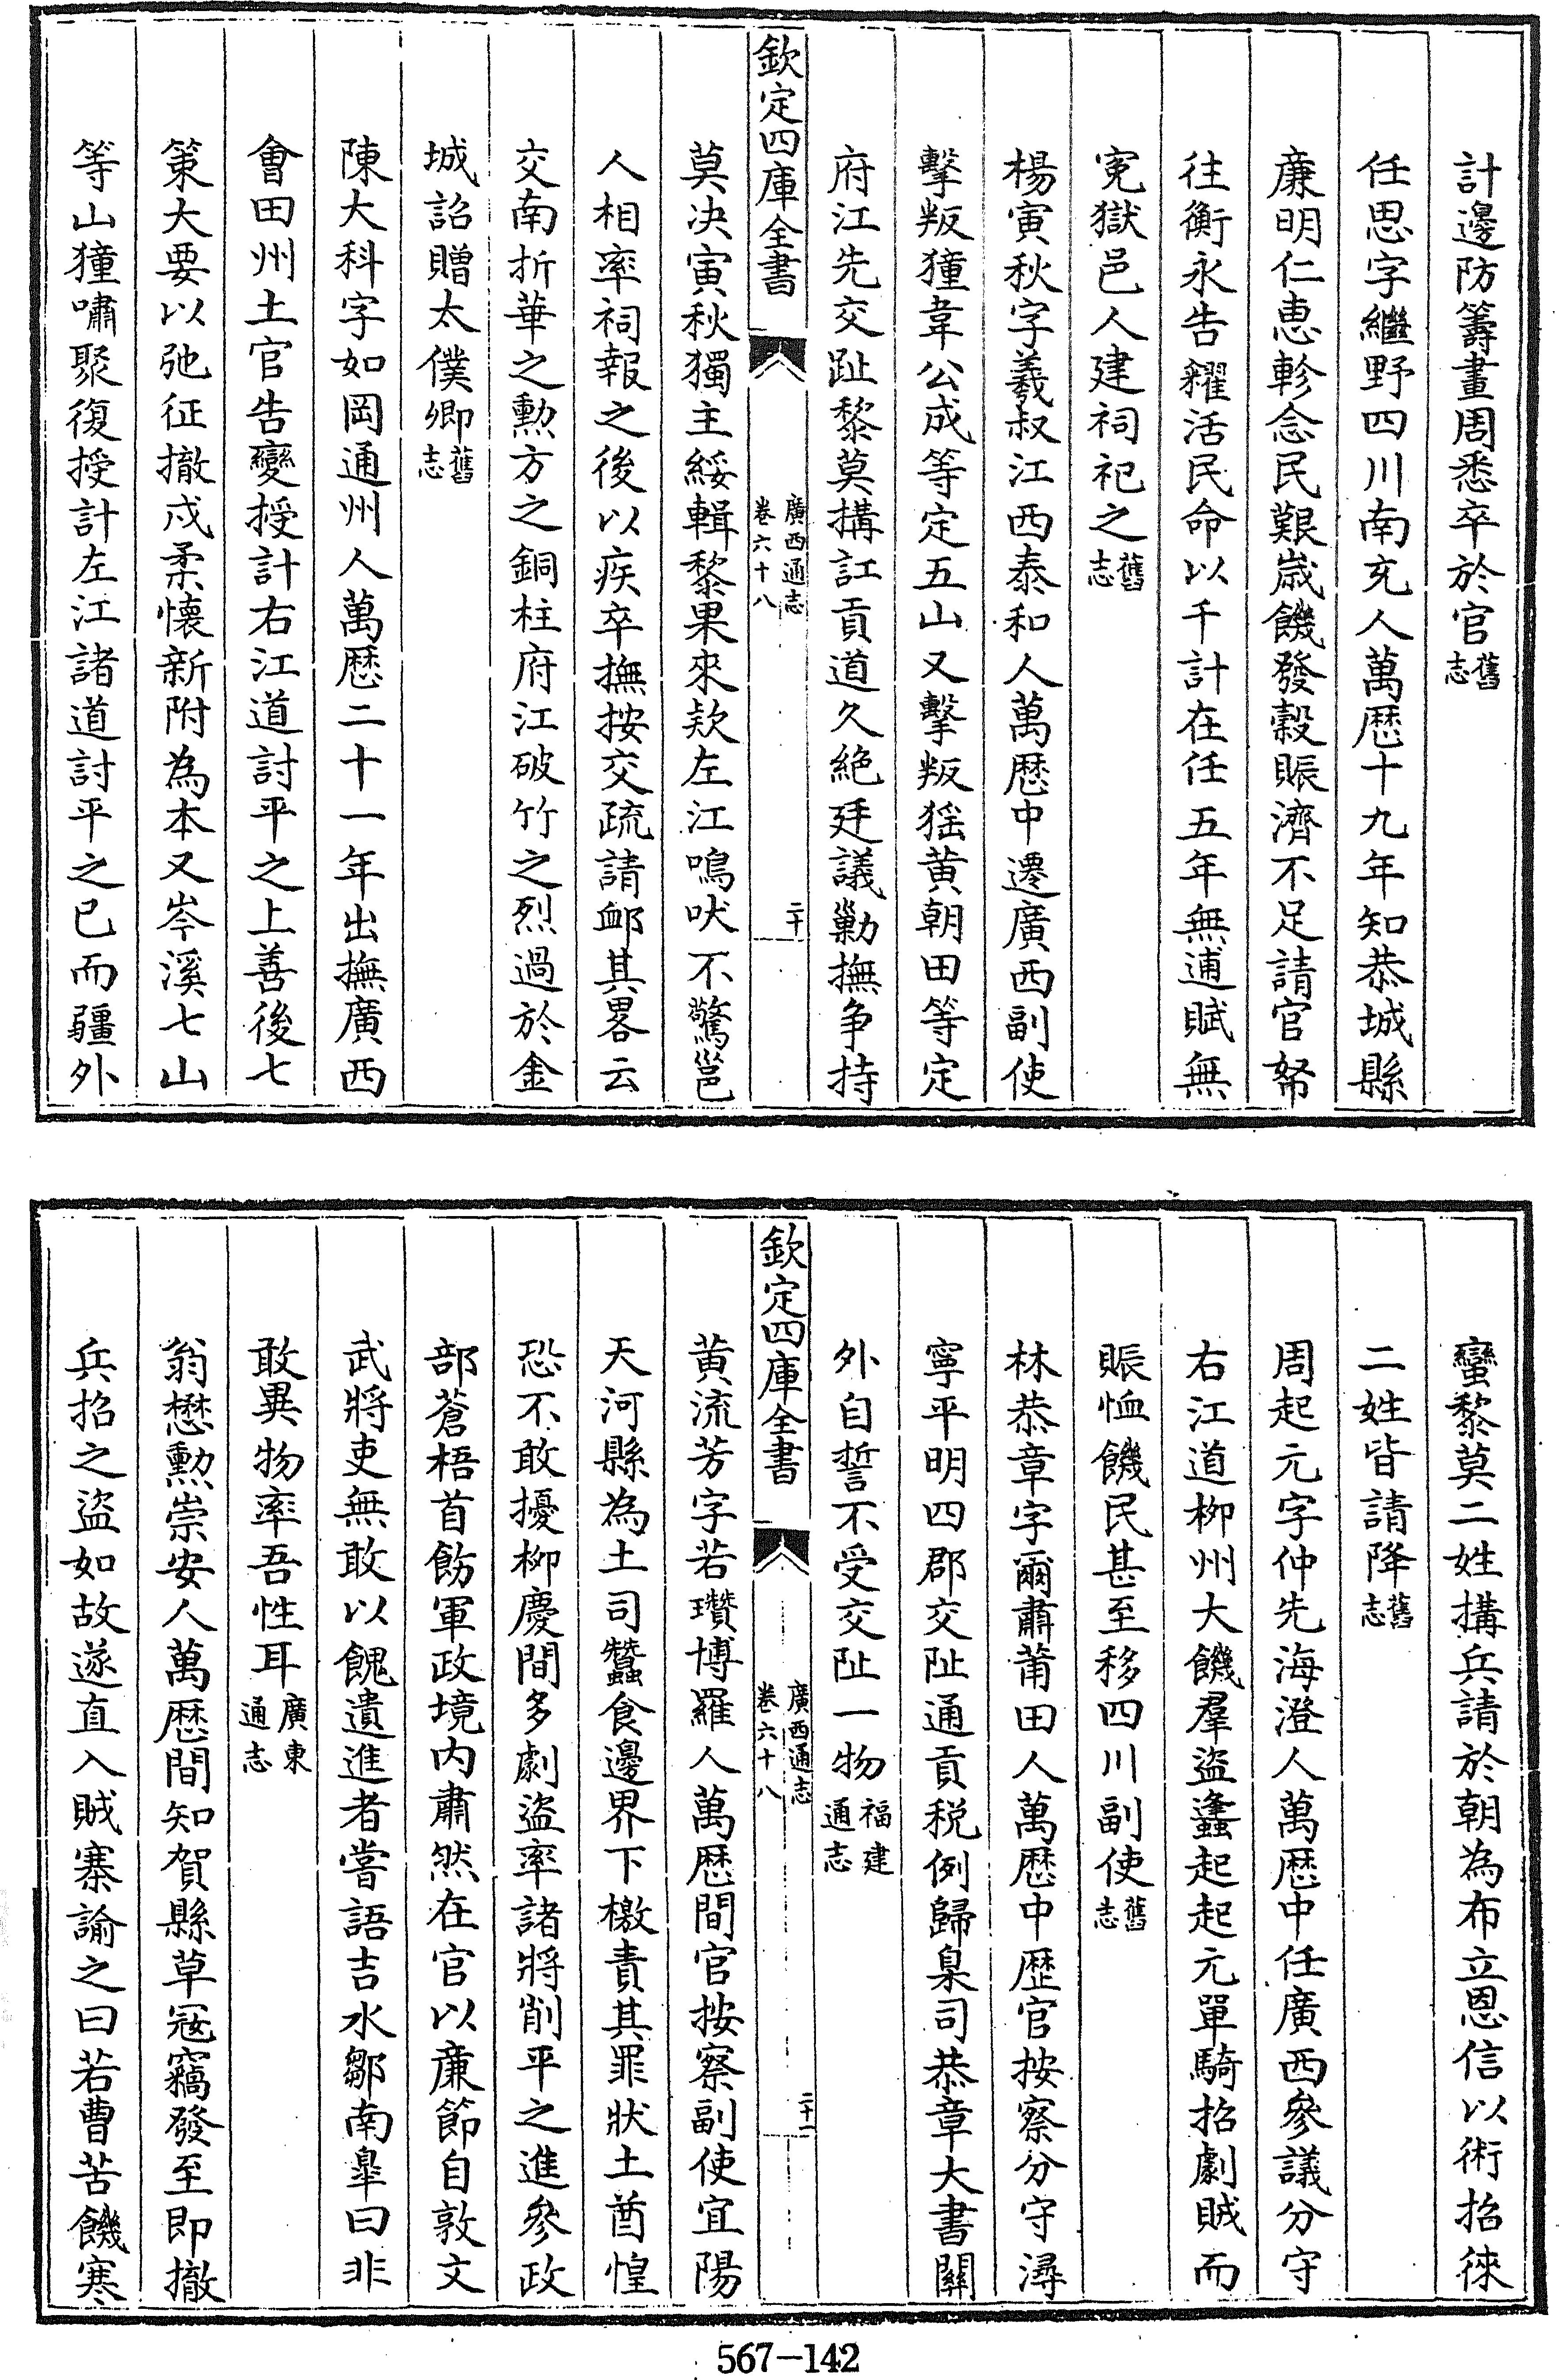 計邊防籌畫周悉卒於官舊志
任思字繼野四川南充人萬歴十九年知恭城縣
亷明仁恵軫念民艱歳饑發榖賑濟不足請官帑
往衡永告糴活民命以千計在任五年無逋賦無
寃獄邑人建祠祀之舊志
楊寅秋字羲叔江西泰和人萬歴中遷廣西副使
擊叛獞韋公成等定五山又擊叛猺黄朝田等定
府江先交趾黎莫搆訌貢道久絶廷議勦撫争持
欽定四庫全書
廣西通志
卷六十八
二十
莫决寅秋獨主綏輯黎果來欵左江鳴吠不驚邕
人相率祠報之後以疾卒撫按交疏請䘏其畧云
交南折華之勲方之銅柱府江破竹之烈過於金
城詔贈太僕卿舊志
陳大科字如岡通州人萬歴二十一年出撫廣西
會田州土官告變授計右江道討平之上善後七
策大要以弛征撤戍柔懐新附為本又岑溪七山
等山獞嘯聚復授計左江諸道討平之已而疆外
蠻黎莫二姓搆兵請於朝為布立恩信以術招徠
二姓皆請降舊志
周起元字仲先海澄人萬歴中任廣西參議分守
右江道柳州大饑羣盜蠭起起元單騎招劇賊而
賑恤饑民甚至移四川副使舊志
林恭章字爾肅莆田人萬歴中歴官按察分守潯
寧平明四郡交阯通貢税例歸臬司恭章大書關
外自誓不受交阯一物福建通志
欽定四庫全書
廣西通志
卷六十八
二十一
黄流芳字若瓚博羅人萬歴間官按察副使宜陽
天河縣為土司蠶食邊界下檄責其罪狀土酋惶
恐不敢擾柳慶間多劇盜率諸將削平之進參政
部蒼梧首飭軍政境内肅然在官以亷節自敦文
武將吏無敢以餽遺進者嘗語吉水鄒南臯曰非
敢異物率吾性耳廣東通志
翁懋勲崇安人萬歴間知賀縣草宼竊發至即撤
兵招之盜如故遂直入賊寨諭之曰若曹苦饑寒
567-142